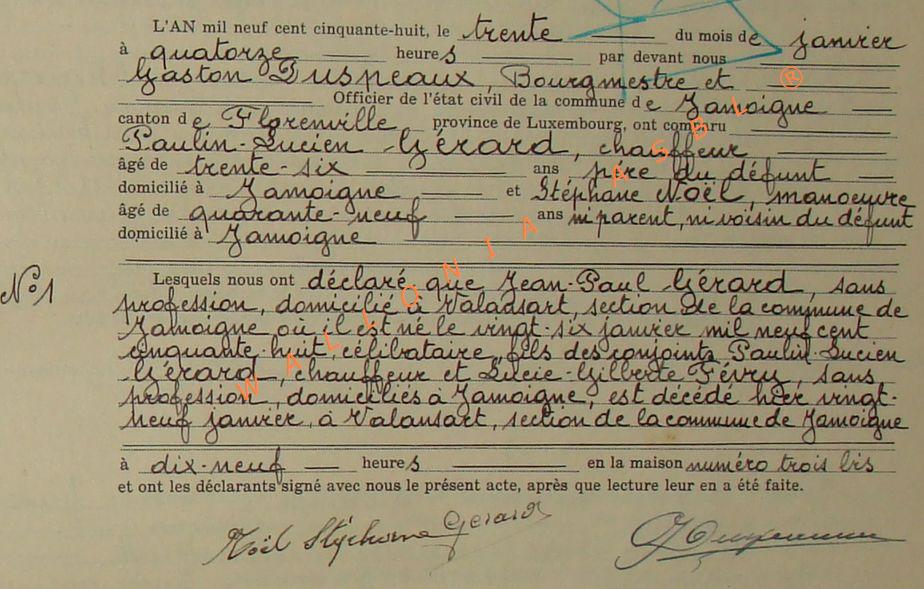 L'AN mil neuf cent cinquante-huit, le trente du mois de janvier
à quatorze heures par devant nous
Gaston Duspeaux, Bourgmestre et
Officier de l'état civil de la commune de Jamoigne
canton de Florenville province de Luxembourg, ont comparu
Paulin-Lucien Gérard, chauffeur
âgé de trente-six ans, père du défunt
domicilié à Jamoigne et Stéphane Noël, manoeuvre
âgé de quarante-neuf ans ni parent, ni voisin du défunt
domicilié à Jamoigne
N°1
Lesquels nous ont déclaré que Jean-Paul Gérard, sans
profession, domicilié à Valansart, section de la commune de
Jamoigne où il est né le vingt-six janvier mil neuf cent
cinquante-huit, célibataire, fils des conjoints Paulin-Lucien
Gérard, chauffeur et Lucie-Gilberte Févry, sans
profession, domiciliés à Jamoigne, est décédé hier vingt-
neuf janvier, à Valansart, section de la commune de Jamoigne
à dix-neuf heures en la maison numéro trois bis
et ont les déclarants signé avec nous le présent acte, après que lecture leur en a été faite.
Noël Stéphane Gerard
WALLONIA ASBL ®